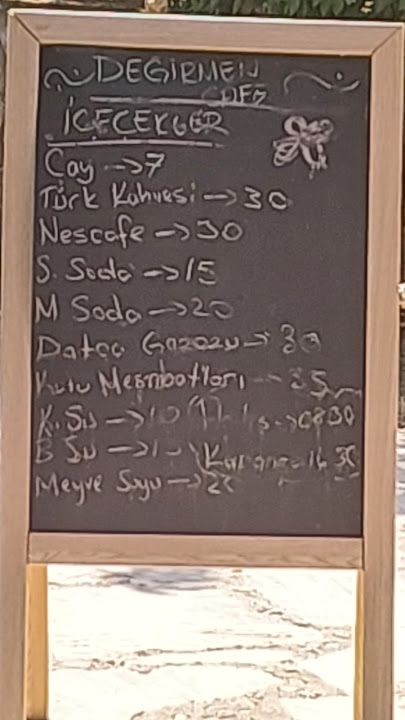 DEĞİRMEN
CAFE
İÇECEKLER
Çay → 7
Türk Kahvesi → 30
Nescafe → 30
S. Soda → 15
M Soda → 20
Datça Gazozu → 30
Kutu Meşrubatları → 25
K. Su → 10
B Su →
Meyve Suyu →